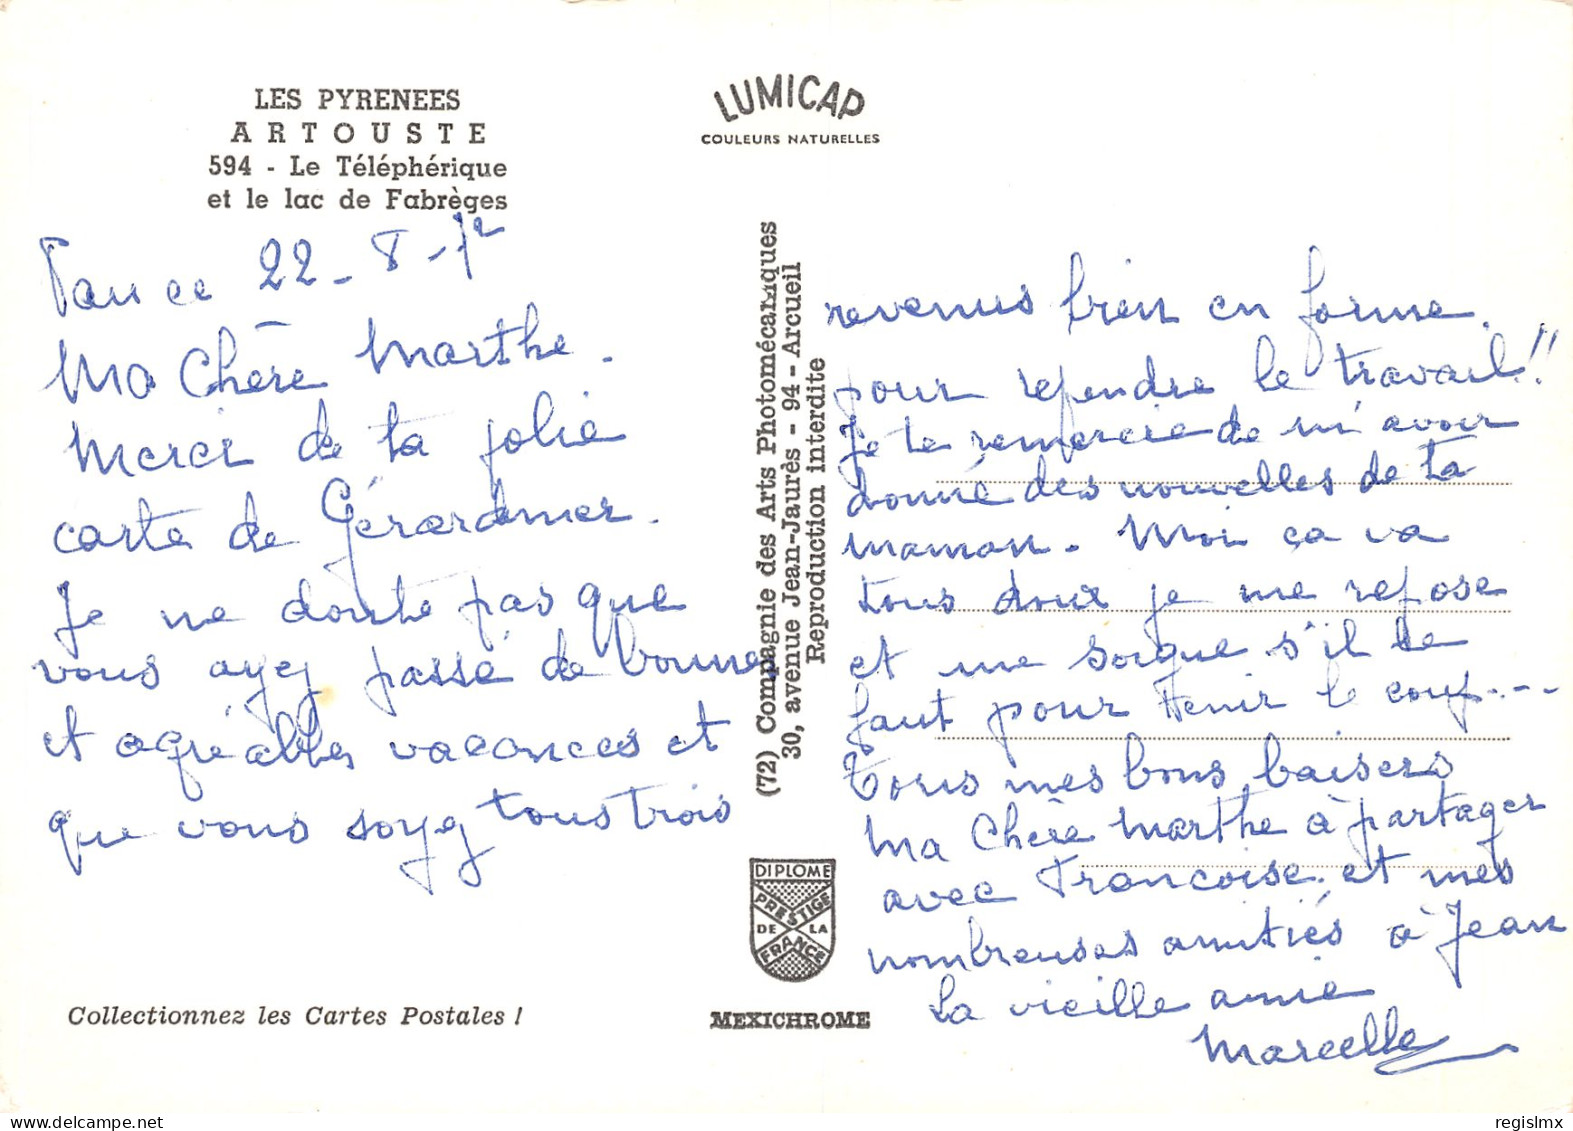 LES PYRENEES
ARTOUSTE
594 - Le Téléphérique
et le lac de Fabrèges
LUMICAP
COULEURS NATURELLES
22-8-72
Ma Chère Marthe.
Merci de ta jolie
carte de Gérardmer.
Je ne doute pas que
vous ayez passé de bonnes
et agréables vacances et
que vous soyez tous trois
Collectionnez les Cartes Postales !
(72) Compagnie des Arts Photomécaniques
30, avenue Jean-Jaurès - 94 - Arcueil
Reproduction interdite
DIPLOME
PRESTIGE
DE LA
FRANCE
MEXICHROME
revenus bien en forme.
pour rependre le travail!!
Je te remercie de m'avoir
donné des nouvelles de ta
maman. Moi ça va
tous doux je me repose
et me soigne s'il le
faut pour tenir le coup...--
Tous mes bons baisers
Ma Chère Marthe à partager
avec Francoise. et mes
nombreuses amitiés à Jean
La vieille amie
Marcelle
regislmx